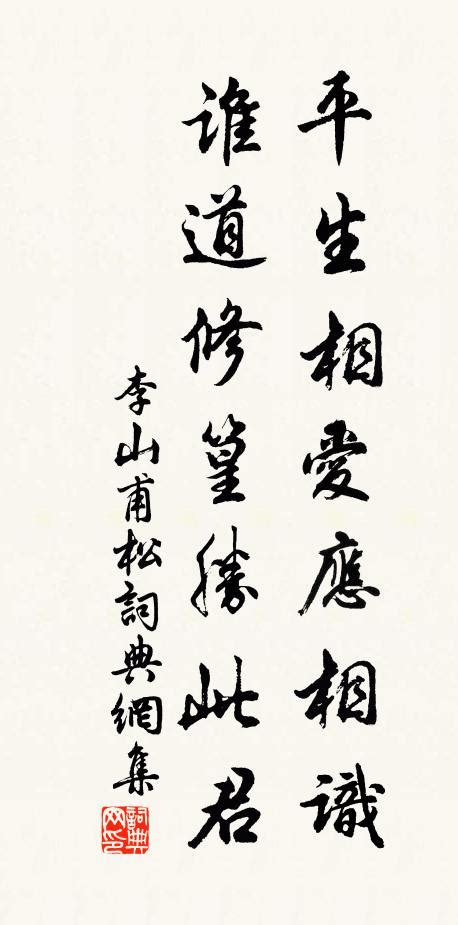 平生相愛應相識
誰道修篁勝此君
李山甫松詞典網集
詞典网印